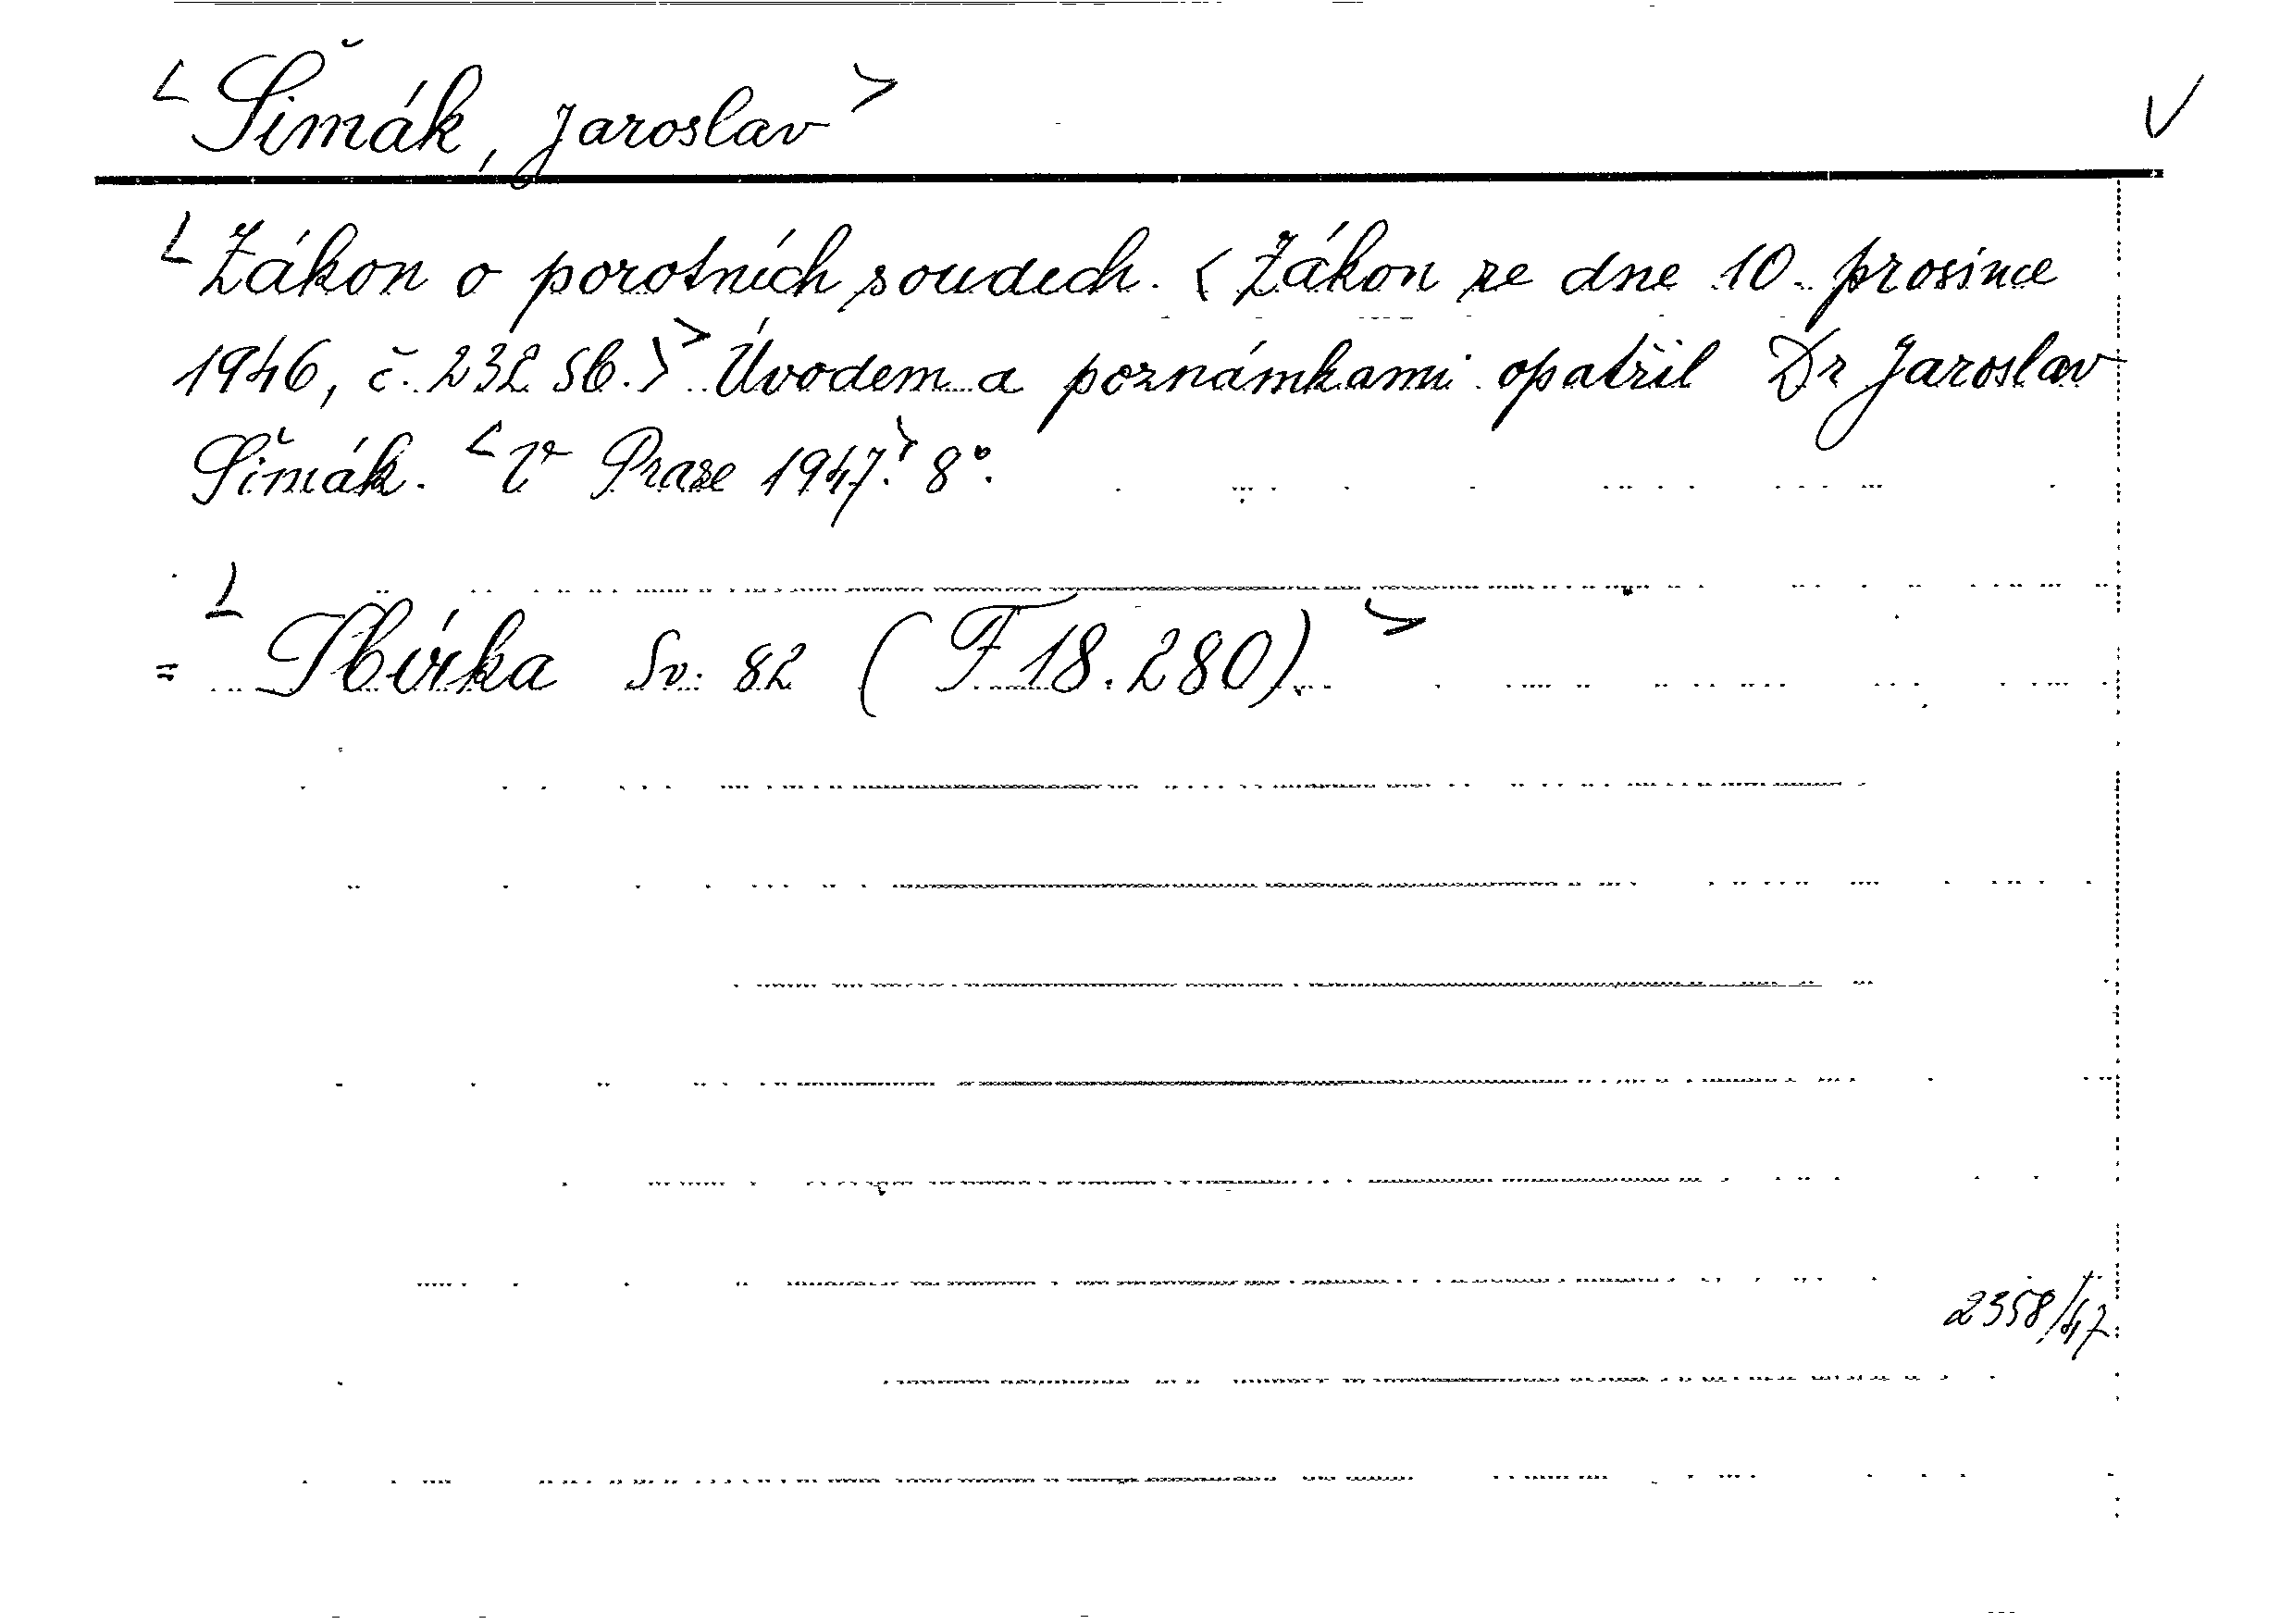 <Šimák, Jaroslav> V
<Zákon o porotních soudech. (Zákon ze dne 10. prosince
1946, č. 232 Sb.)> Úvodem a poznámkami opatřil Dr Jaroslav
Šimák. <V Praze 1947.> 8°.
= <Sbírka Sv. 82 (F 18.280).>
2358/47.